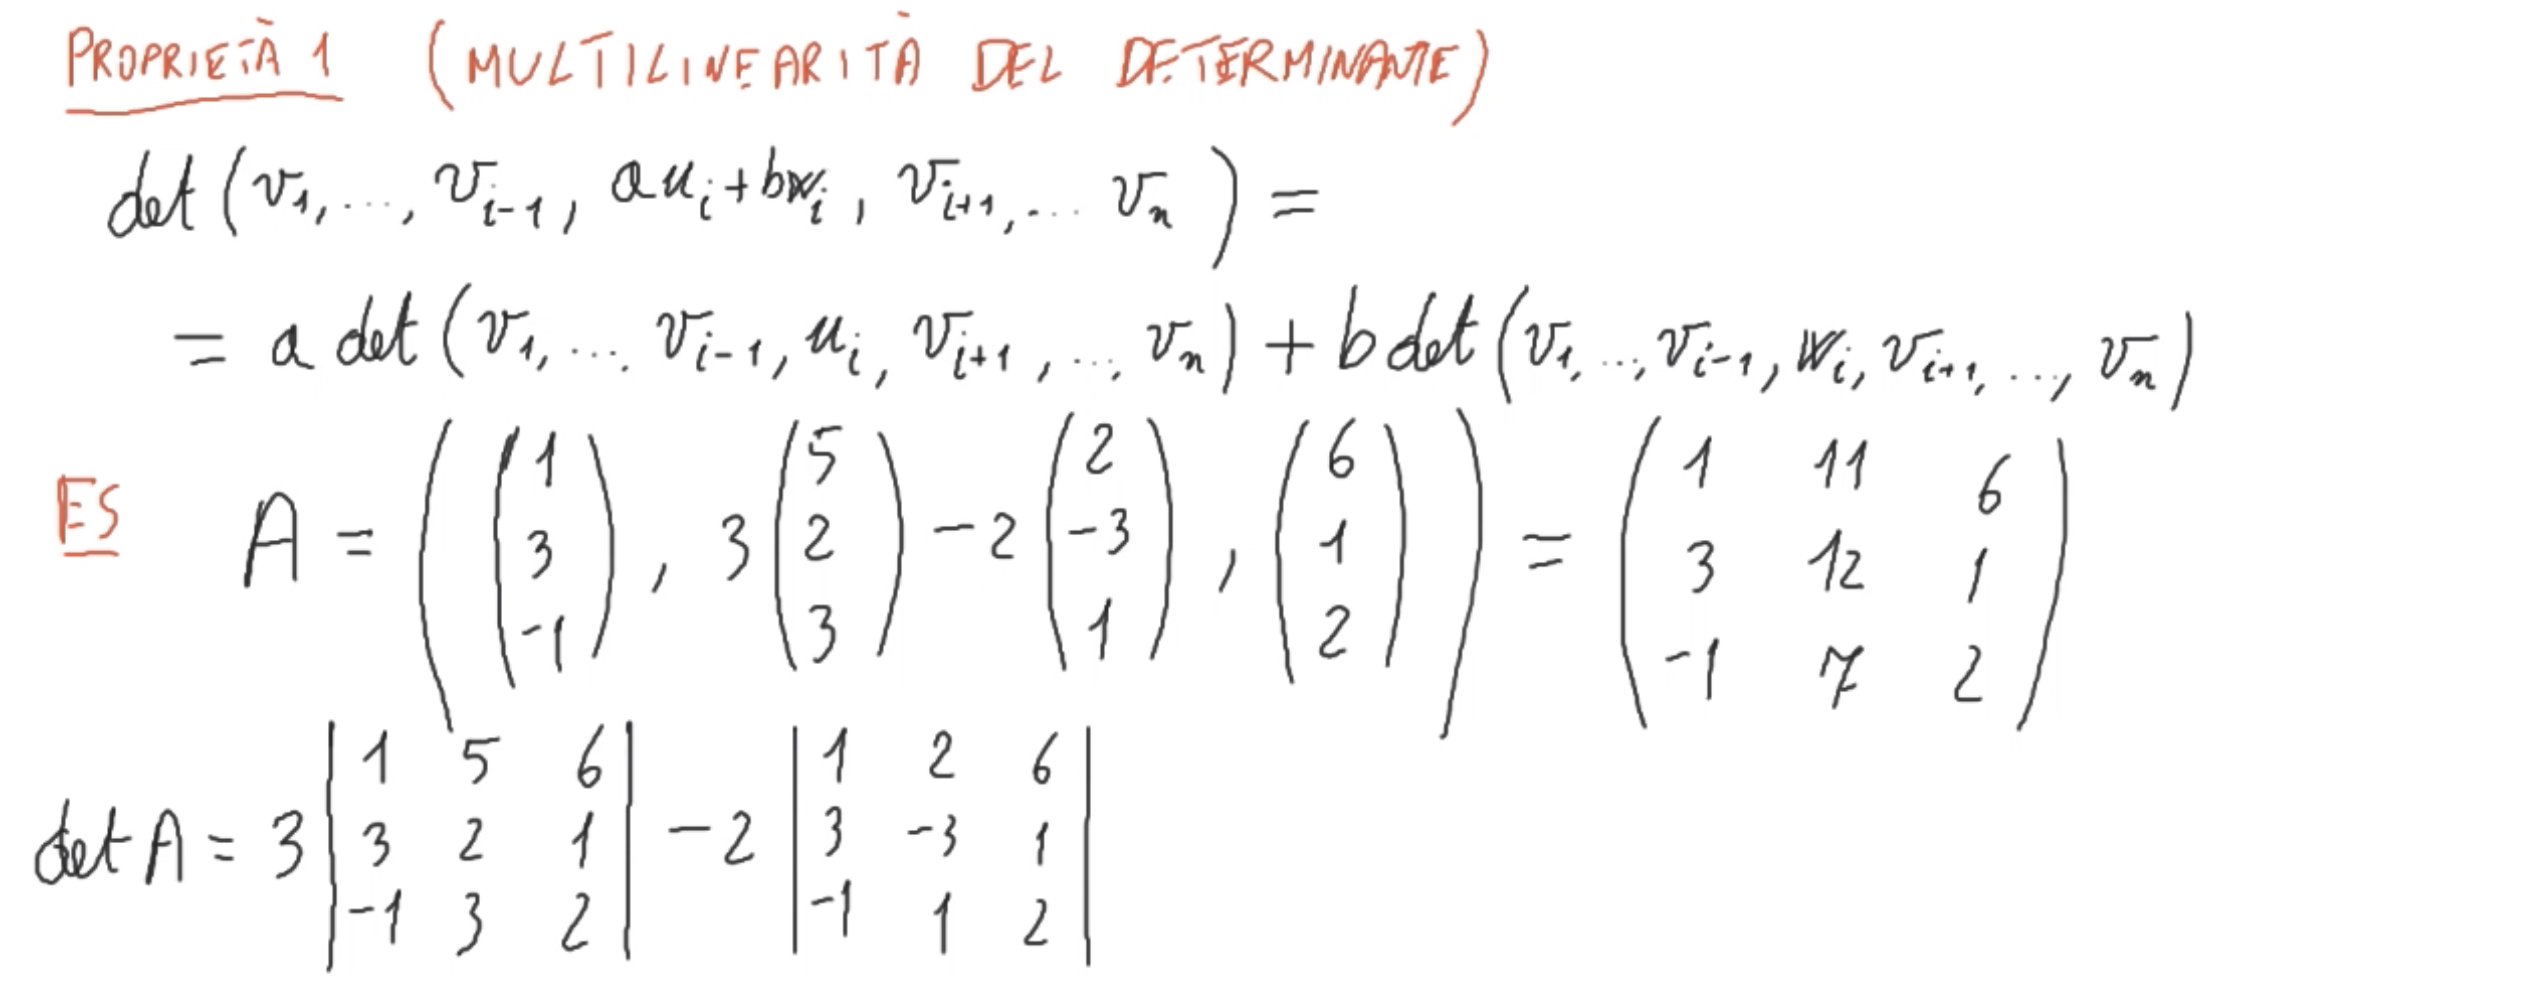 PROPRIETÀ 1 (MULTILINEARITÀ DEL DETERMINANTE)
det (v₁, ..., vᵢ₋₁, auᵢ+bwᵢ, vᵢ₊₁, ... vₙ) =
= a det (v₁, ... vᵢ₋₁, uᵢ, vᵢ₊₁, ..., vₙ) + b det (v₁, ..., vᵢ₋₁, wᵢ, vᵢ₊₁, ..., vₙ)
ES A = ( (1 3 -1), 3 (5 2 3) -2 (2 -3 1), (6 1 2) ) = ( 1 11 6 3 12 1 -1 7 2 )
det A = 3 | 1 5 6 3 2 1 -1 3 2 | -2 | 1 2 6 3 -3 1 -1 1 2 |